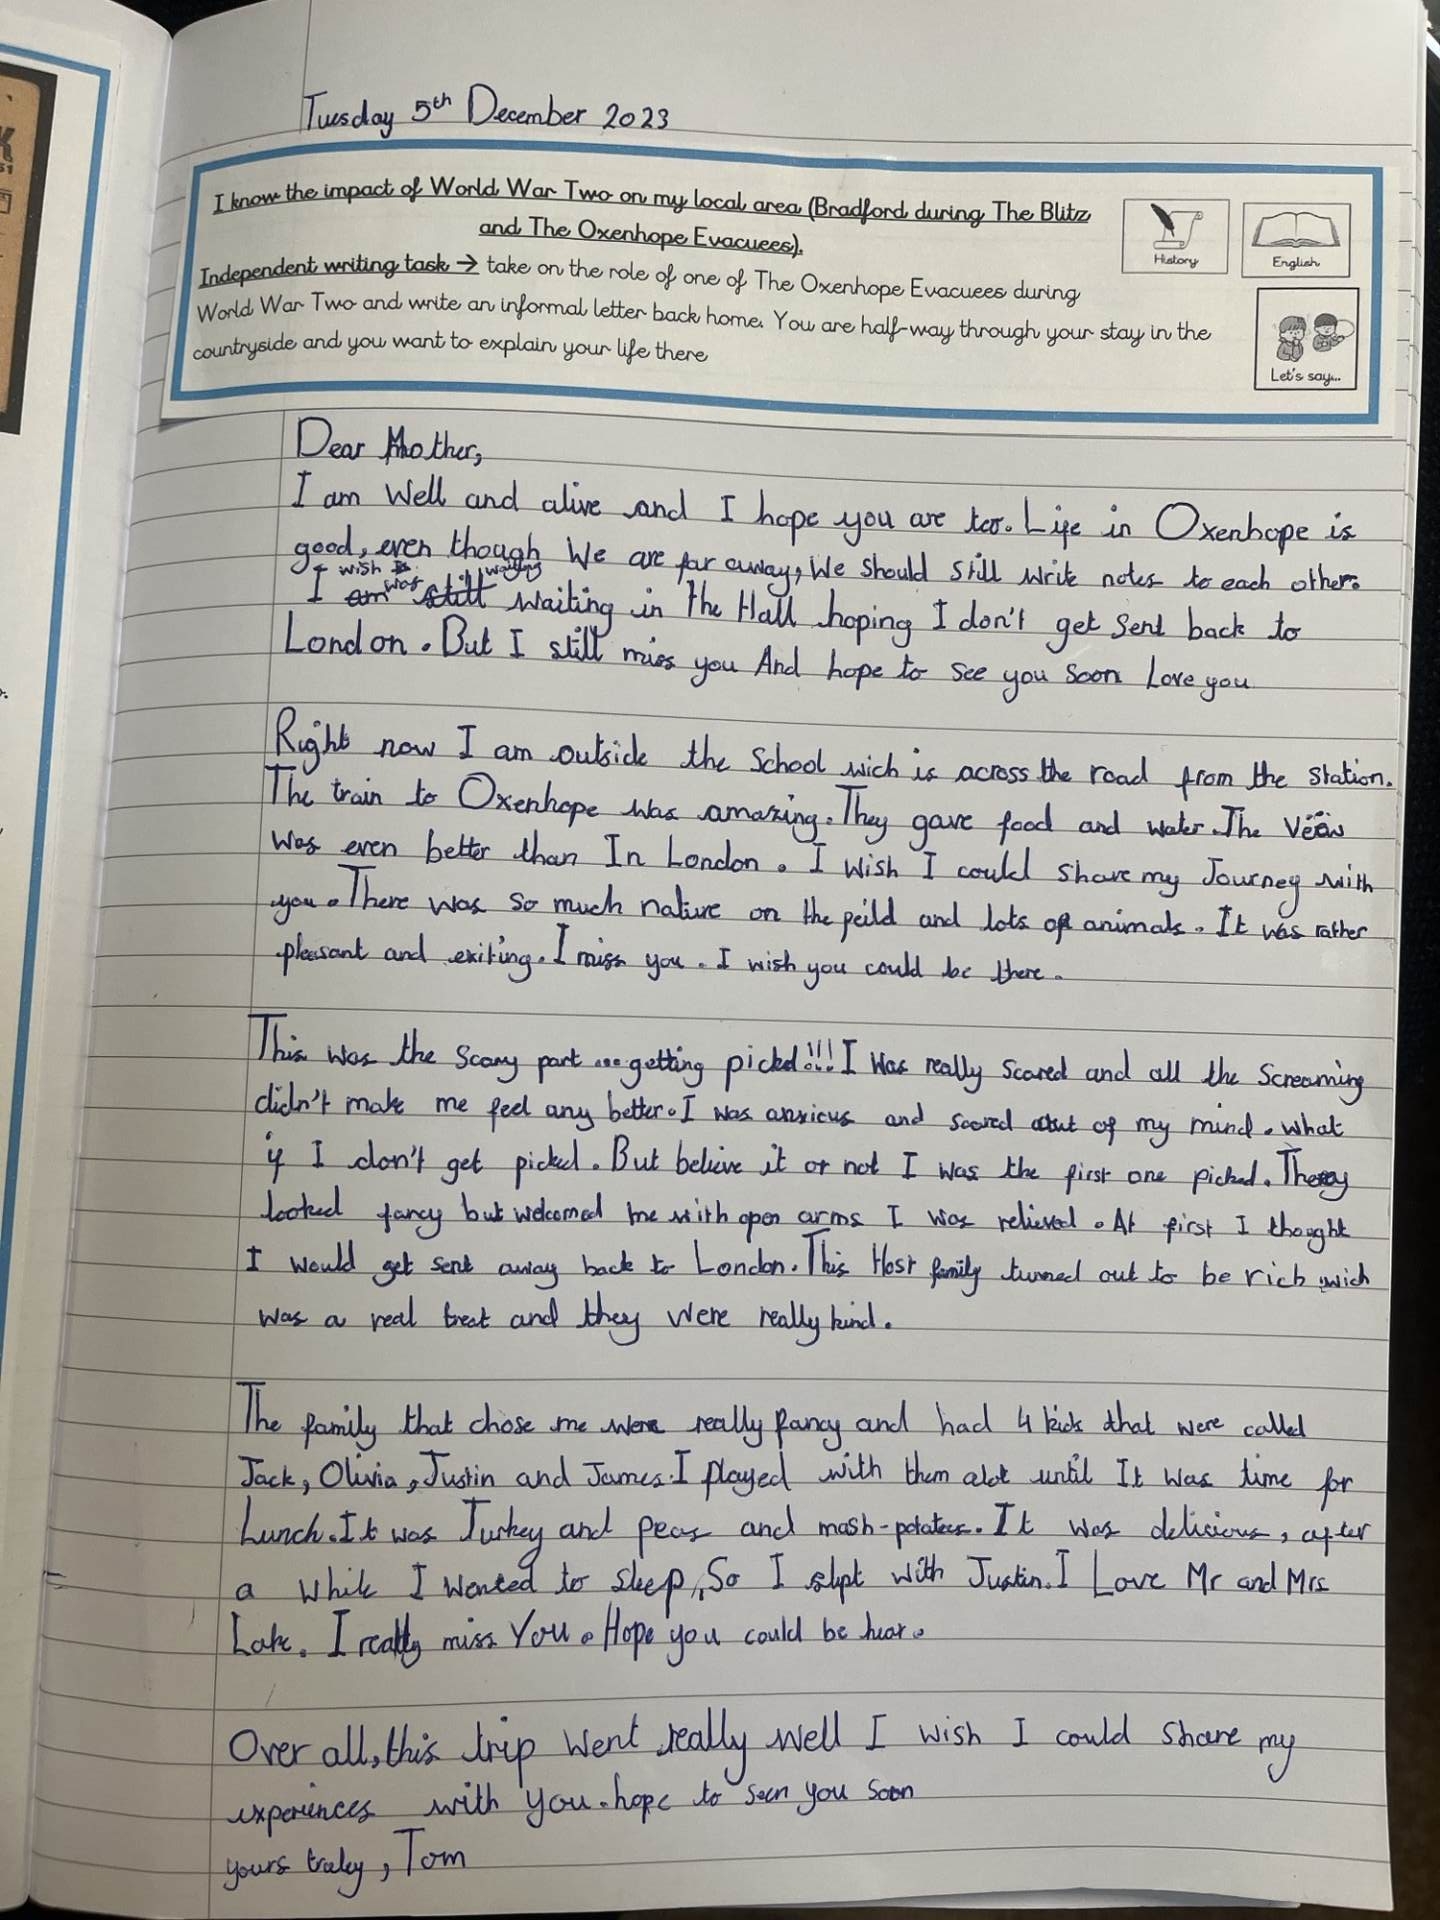 Tuesday 5th December 2023
I know the impact of World War Two on my local area (Bradford during The Blitz
and The Oxenhope Evacuees).
Independent writing task → take on the role of one of The Oxenhope Evacuees during
World War Two and write an informal letter back home. You are half-way through your stay in the
countryside and you want to explain your life there
History
English
Let's say...
Dear Mother,
I am Well and alive and I hope you are too. Life in Oxenhope is
good, even though We are far away, We should still write notes to each other.
wish was waiting
I am still waiting in the Hall hoping I don't get Sent back to
London. But I still miss you And hope to see you soon Love you
Right now I am outside the School wich is across the road from the station.
The train to Oxenhope was amazing. They gave food and water. The
was even better than In London. I wish I could share my Journey with
you. There was so much nature on the feild and lots of animals. It was rather
pleasant and exiting. I miss you. I wish you could be there.
This was the scary part ... getting picked!!! I was really scared and all the Screaming
didn't make me feel any better. I was anxious and scared out of my mind. what
if I don't get picked. But believe it or not I was the first one picked. They
looked fancy but welcomed me with open arms I was relieved. At first I thought
I would get sent away back to London. This Host family turned out to be rich wich
was a real treat and they were really kind.
The family that chose me were really fancy and had 4 kids that were called
Jack, Olivia, Justin and James. I played with them alot until It was time for
Lunch. It was Turkey and peas and mash-potatoes. It was delicious, after
a while I wanted to sleep, So I slept with Justin. I Love Mr and Mrs
Lake. I really miss You. Hope you could be hear.
Over all, this trip went really well I wish I could share my
experiences with you. hope to seen you soon
yours truley, Tom